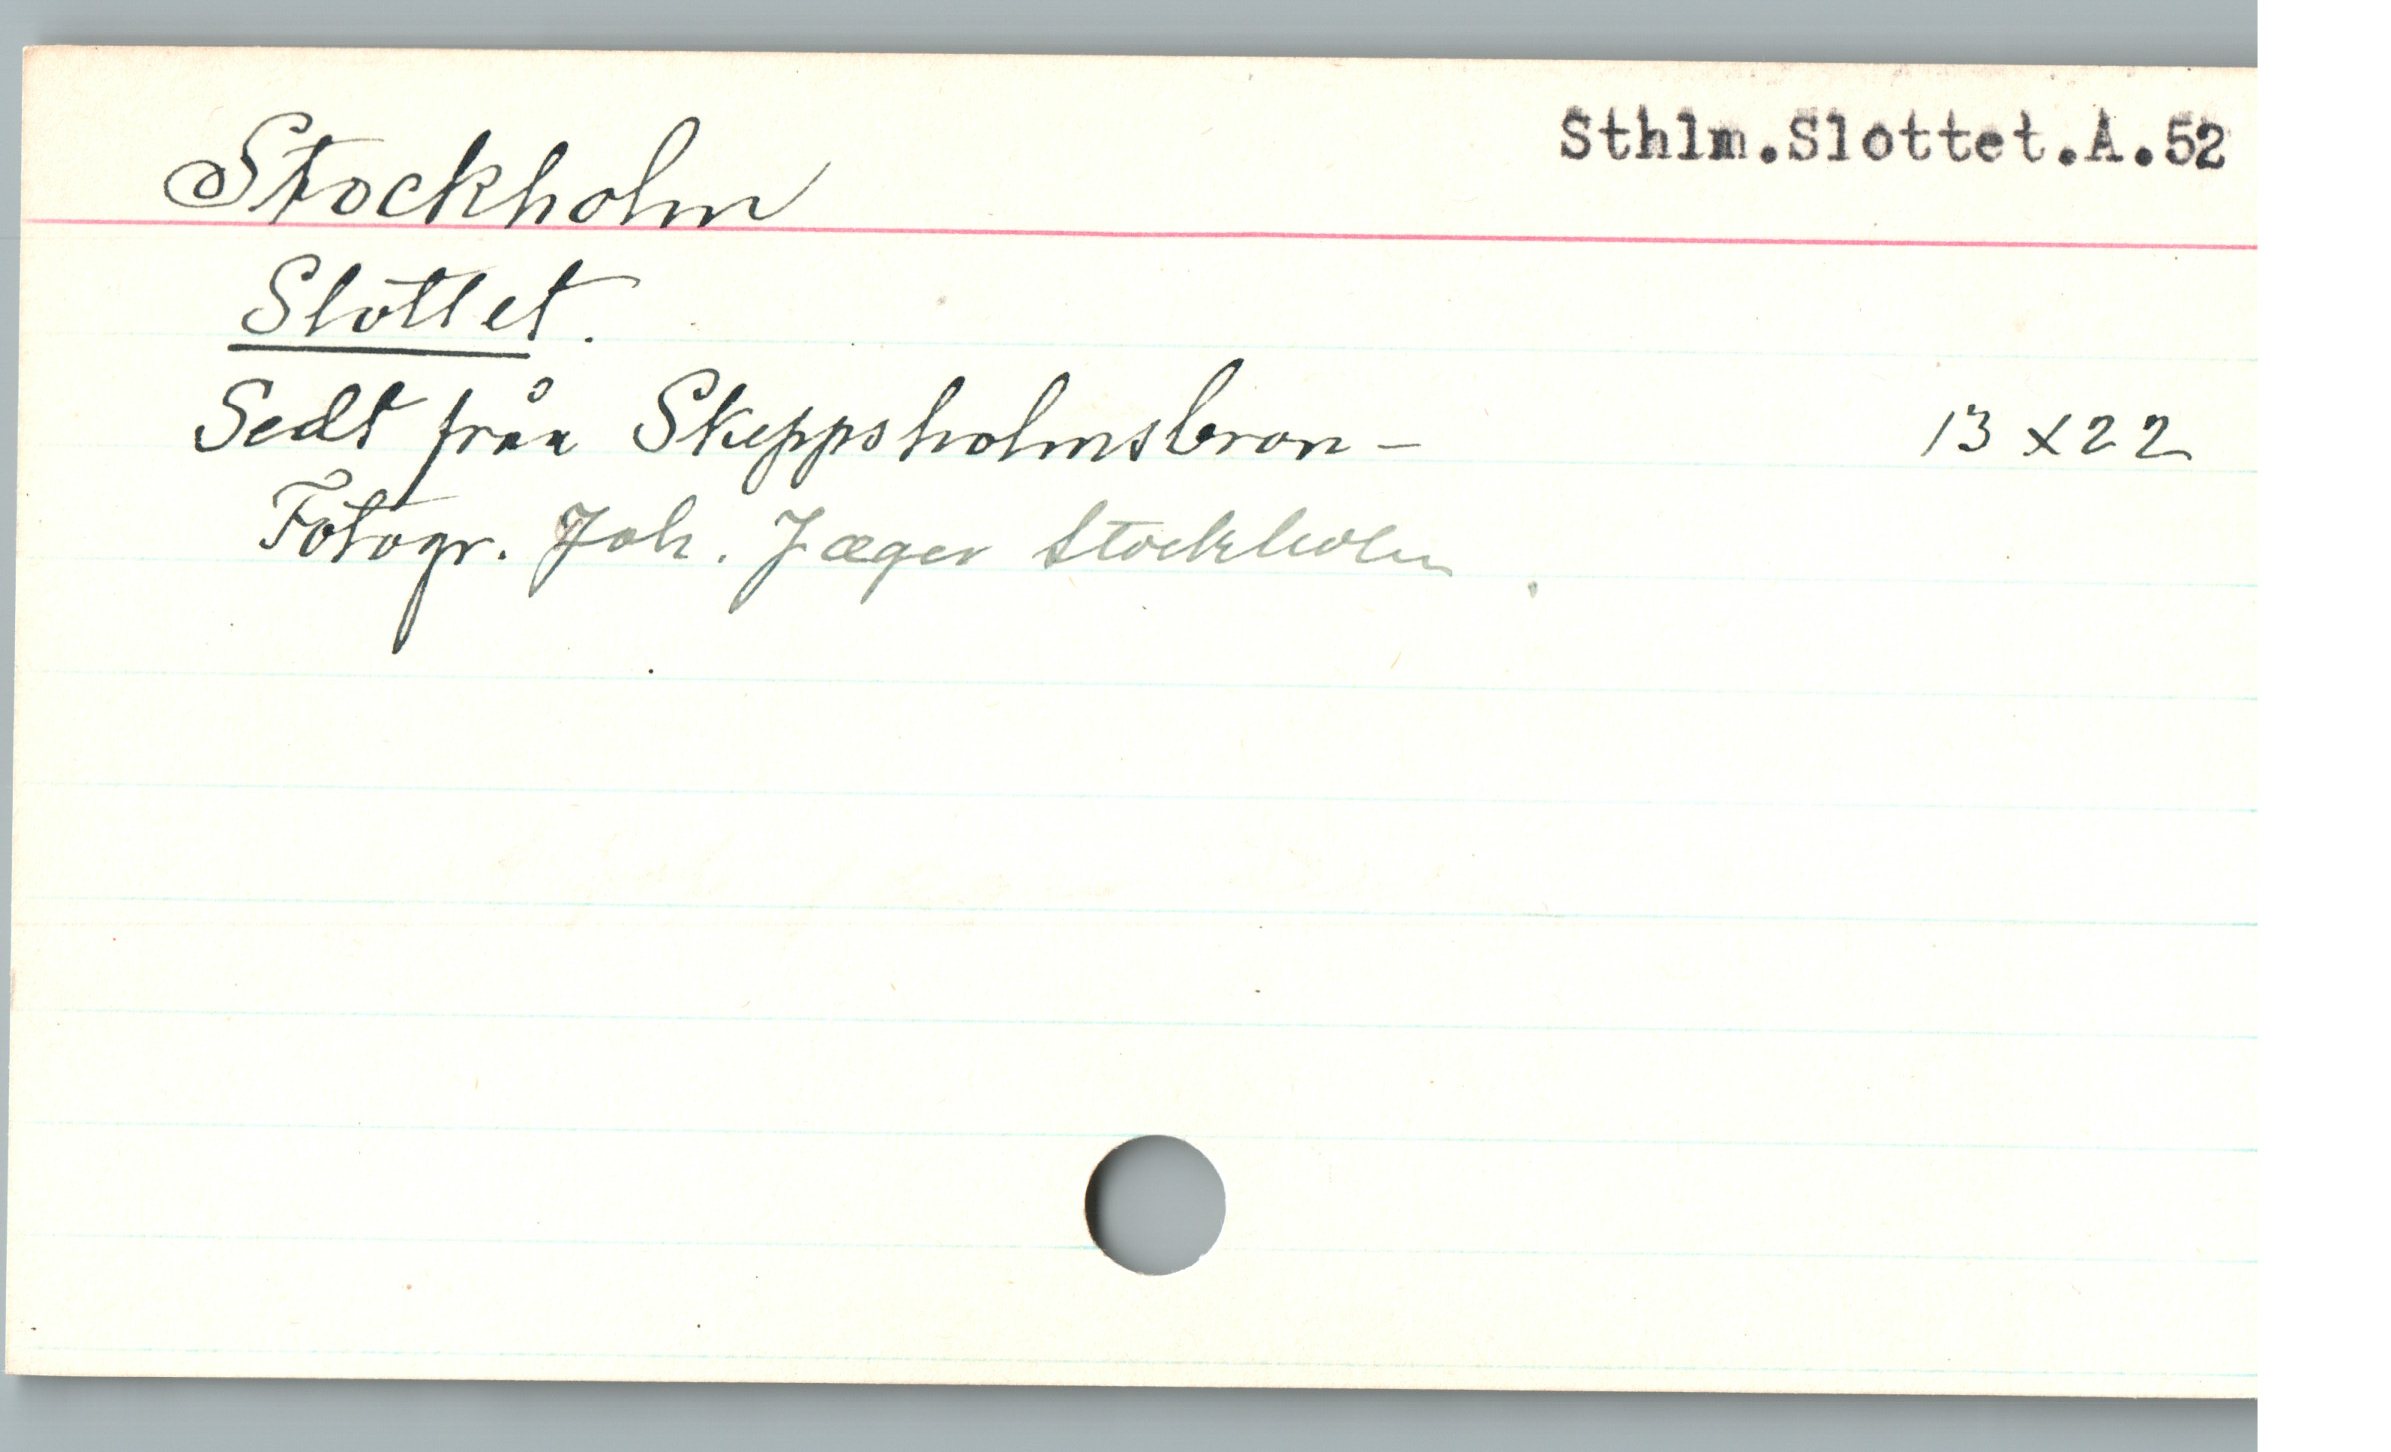 Sthlm.Slottet.A.52
Stockholm
Slottet.
Sedt från Skeppsholmsbron - 13 x 22
Fotogr. Joh. Jæger Stockholm.